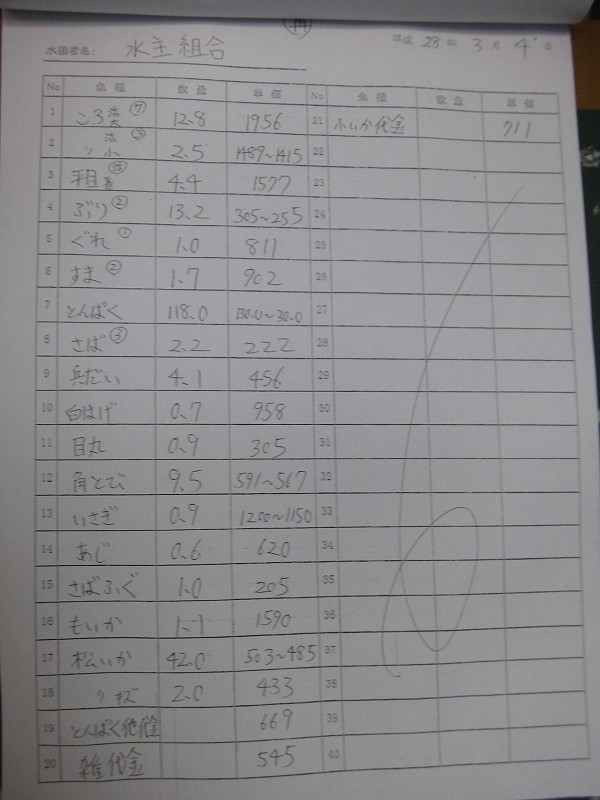 水揚者名: 水主組合 平成 28 年 3 月 4 日
No 魚種 数量 単価 No 魚種 数量 単価
1 ころ 活 大 ⑦ 12.8 1956 21 小いか代金 711
2 〃 活 小 ③ 2.5 1489~1415 22
3 平目 4.4 1577 23
4 ぶり ② 13.2 305~255 24
5 ぐれ ① 1.0 811 25
6 すま ② 1.7 902 26
7 とんぱく 118.0 130.0~30.0 27
8 さば ③ 2.2 222 28
9 兵だい 4.1 456 29
10 白はげ 0.7 958 30
11 目丸 0.9 305 31
12 角とび 9.5 591~567 32
13 いさぎ 0.9 1200~1150 33
14 あじ 0.6 620 34
15 さばふぐ 1.0 205 35
16 もいか 1.1 1590 36
17 松いか 42.0 503~485 37
18 〃 キズ 2.0 433 38
19 とんぱく他代金 669 39
20 雑代金 545 40